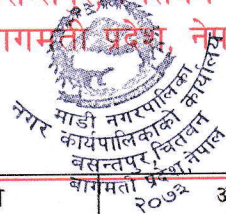 बागमती प्रदेश, नेपाल
माडी नगरपालिका
नगर कार्यपालिकाको कार्यालय
बसन्तपुर, चितवन
बागमती प्रदेश, नेपाल
२०७३